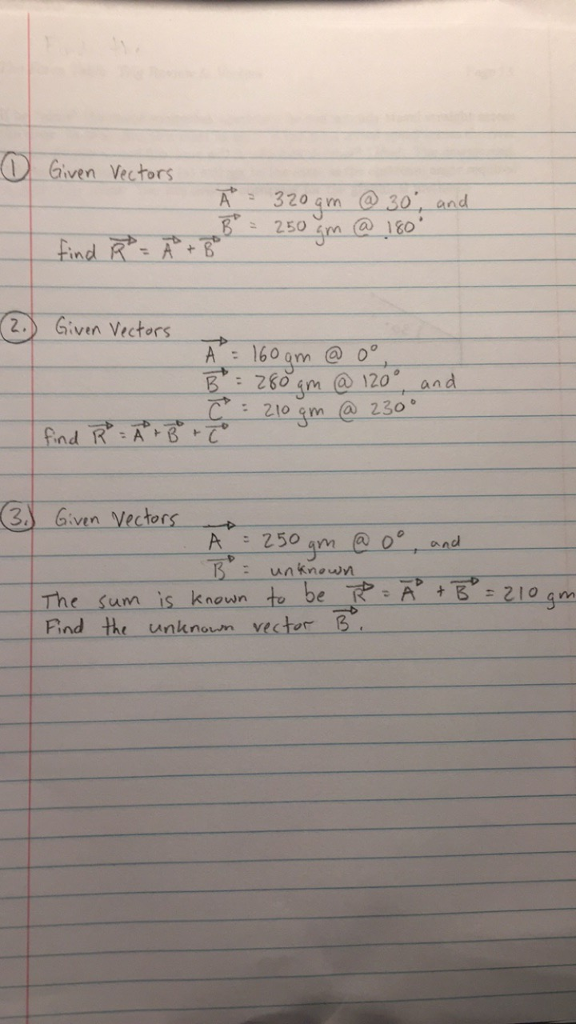 ① Given Vectors
A⃗ = 320 gm @ 30°, and
B⃗ = 250 gm @ 180°
find R⃗ = A⃗ + B⃗
②. Given Vectors
A⃗ = 160 gm @ 0°,
B⃗ = 280 gm @ 120°, and
C⃗ = 210 gm @ 230°
find R⃗ = A⃗ + B⃗ + C⃗
③. Given Vectors
A⃗ = 250 gm @ 0°, and
B⃗ = unknown
The sum is known to be R⃗ = A⃗ + B⃗ = 210 gm
Find the unknown vector B⃗.